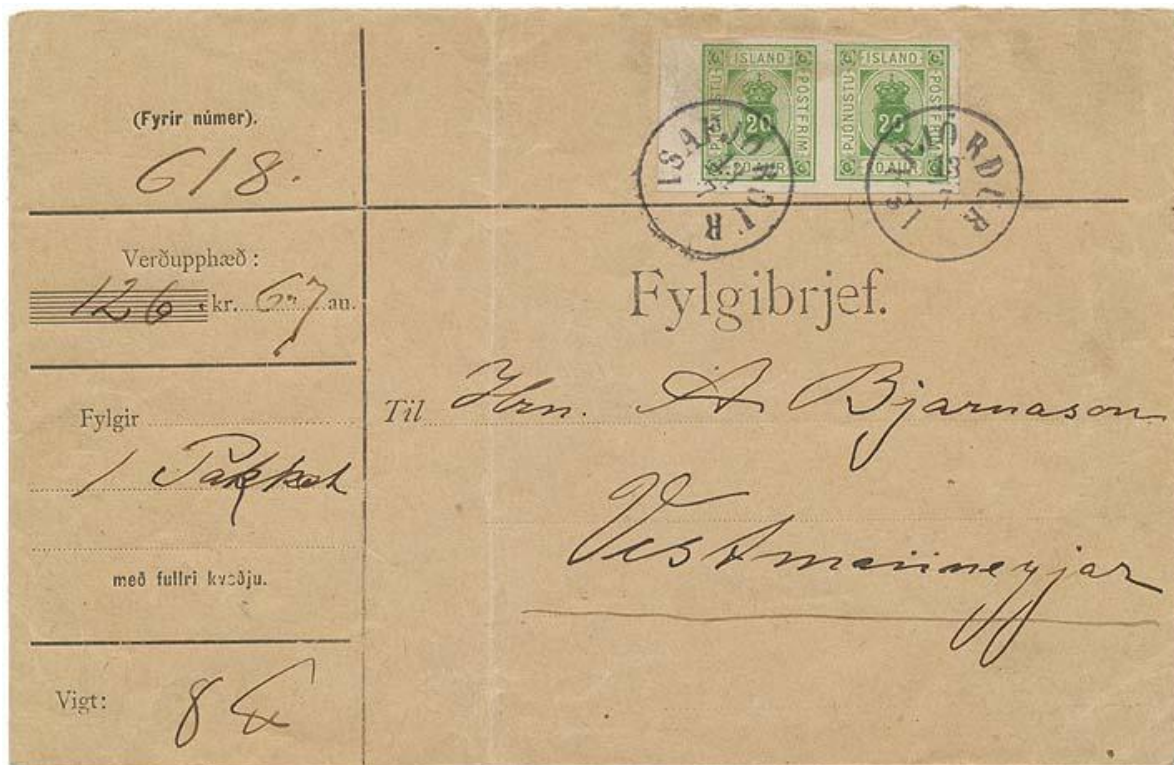 (Fyrir númer).
618.
Verðupphæð:
126 kr. 67 au.
Fylgir
1 Pakket
með fullri kveðju.
Vigt: 8 ℔
ISLAND
PJONUSTU
POSTFRIM
20
20 AUR
ISLAND
PJONUSTU
POSTFRIM
20
20 AUR
ISAFJÖRDUR
ISAFJÖRDUR
13
Fylgibrjef.
Til Hrn. A Bjarnason
Vestmanneyjar